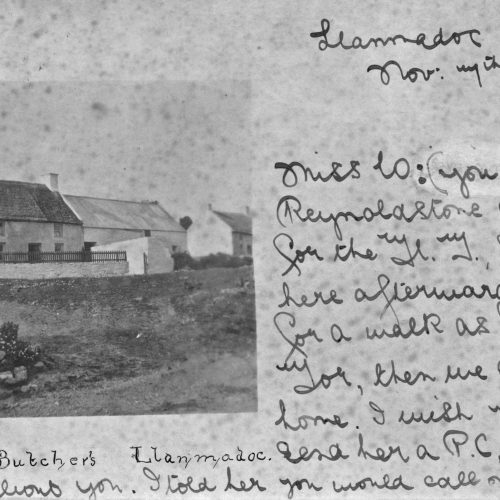 Llanmadoc
Nov:
Miss W: (you
Reynoldstone
for the
here afterward
for a walk as
for, then we
home. I wish
Butcher's Llanmadoc.
send her a P.C.,
you. I told her you would call